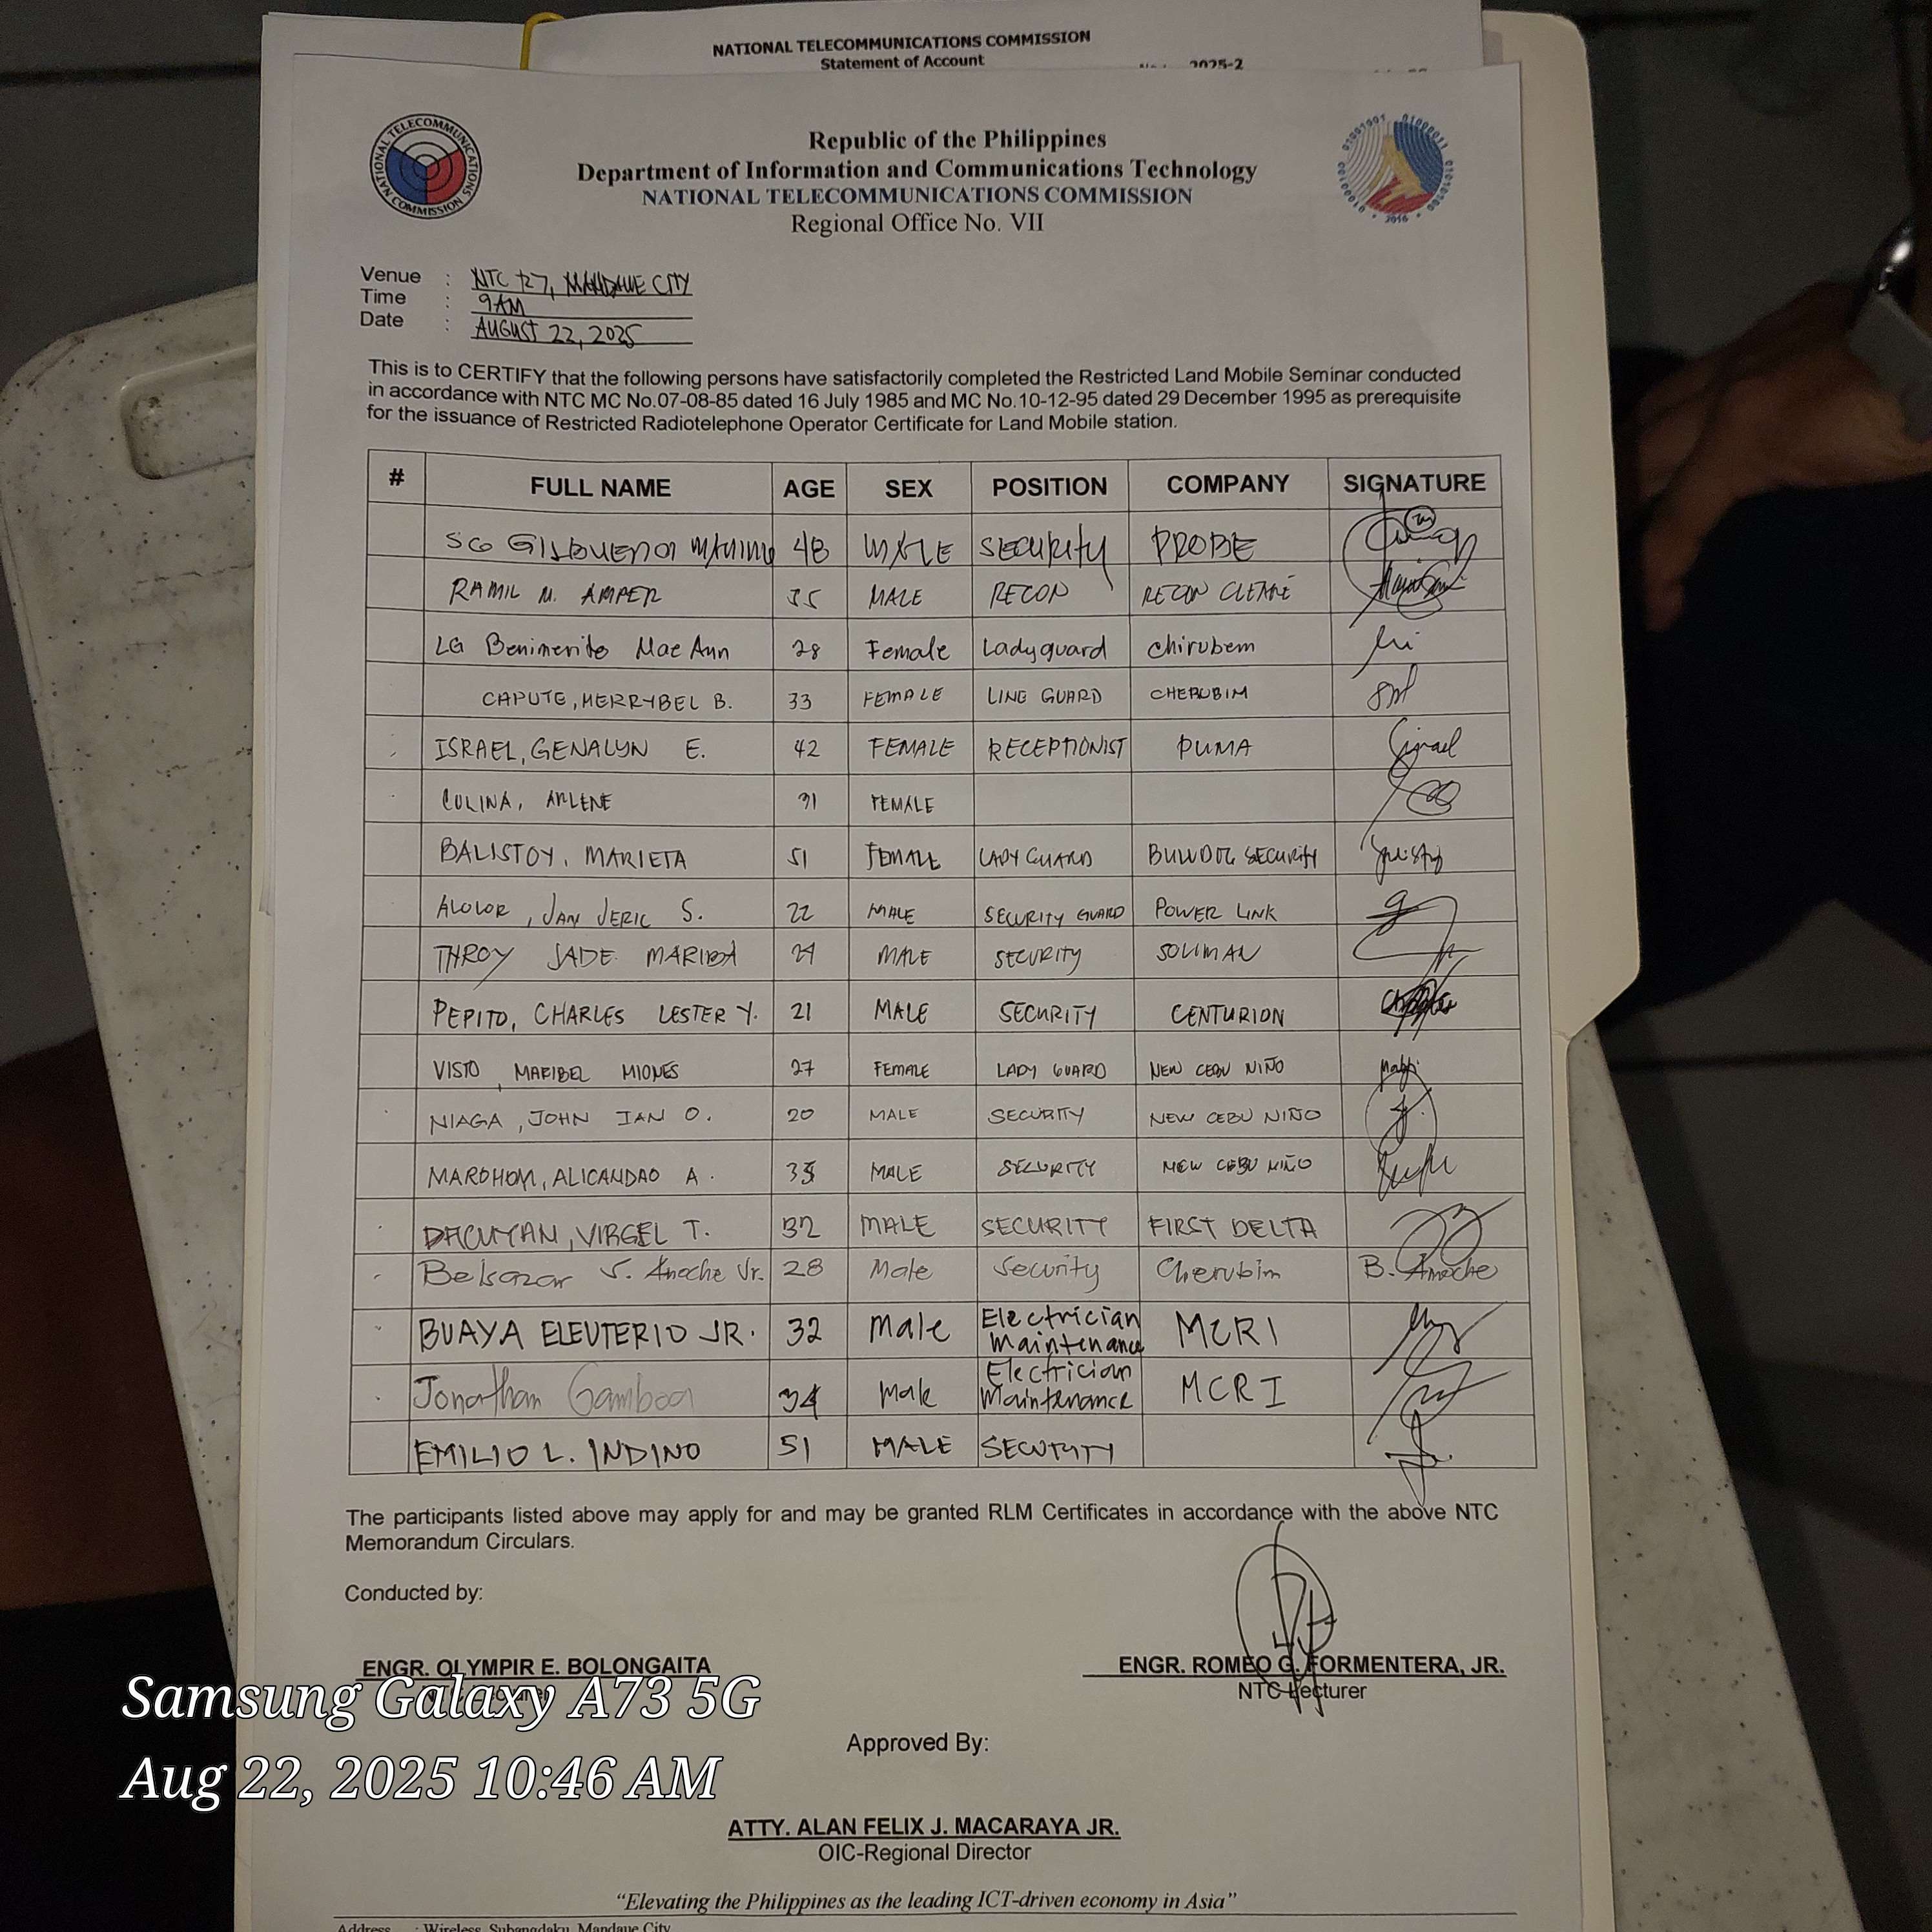 NATIONAL TELECOMMUNICATIONS COMMISSION
Statement of Account
2025-2
NATIONAL TELECOMMUNICATIONS COMMISSION
2016
Republic of the Philippines
Department of Information and Communications Technology
NATIONAL TELECOMMUNICATIONS COMMISSION
Regional Office No. VII
Venue : NTC R7, MANDAUE CITY
Time : 9AM
Date : AUGUST 22, 2025
This is to CERTIFY that the following persons have satisfactorily completed the Restricted Land Mobile Seminar conducted
in accordance with NTC MC No.07-08-85 dated 16 July 1985 and MC No.10-12-95 dated 29 December 1995 as prerequisite
for the issuance of Restricted Radiotelephone Operator Certificate for Land Mobile station.
# FULL NAME AGE SEX POSITION COMPANY SIGNATURE
SG 48 MALE SECURITY PROBE
RAMIL M. AMPER 35 MALE RECON RECON
LG Benimerito Mae Ann 28 Female Ladyguard chirubem
CAPUTE, MERRYBEL B. 33 FEMALE LINE GUARD CHERUBIM
ISRAEL, GENALYN E. 42 FEMALE RECEPTIONIST PUMA
CULINA, ARLENE 31 FEMALE
BALISTOY, MARIETA 51 FEMALE LADY GUARD BULLDOG SECURITY
JAN JERIC S. 22 MALE SECURITY GUARD POWER LINK
THROY JADE 29 MALE SECURITY SOLIMAN
PEPITO, CHARLES LESTER Y. 21 MALE SECURITY CENTURION
VISTO, MARIBEL MIONES 27 FEMALE LADY GUARD NEW CEBU NIÑO
NIAGA, JOHN IAN O. 20 MALE SECURITY NEW CEBU NIÑO
MAROHOM, ALICANDAO A. 35 MALE SECURITY NEW CEBU NIÑO
DACUYAN, VIRGEL T. 32 MALE SECURITY FIRST DELTA
Belsazar S. Anoche Jr. 28 Male Security Cherubim B. Anoche
BUAYA ELEUTERIO JR. 32 Male Electrician Maintenance MCRI
Jonathan Gamboa 34 Male Electrician Maintenance MCRI
EMILIO L. INDINO 51 MALE SECURITY
The participants listed above may apply for and may be granted RLM Certificates in accordance with the above NTC
Memorandum Circulars.
Conducted by:
ENGR. OLYMPIR E. BOLONGAITA ENGR. ROMEO G. FORMENTERA, JR.
NTC Lecturer
Samsung Galaxy A73 5G
Approved By:
Aug 22, 2025 10:46 AM
ATTY. ALAN FELIX J. MACARAYA JR.
OIC-Regional Director
“Elevating the Philippines as the leading ICT-driven economy in Asia”
Address : Wireless, Subangdaku, Mandaue City